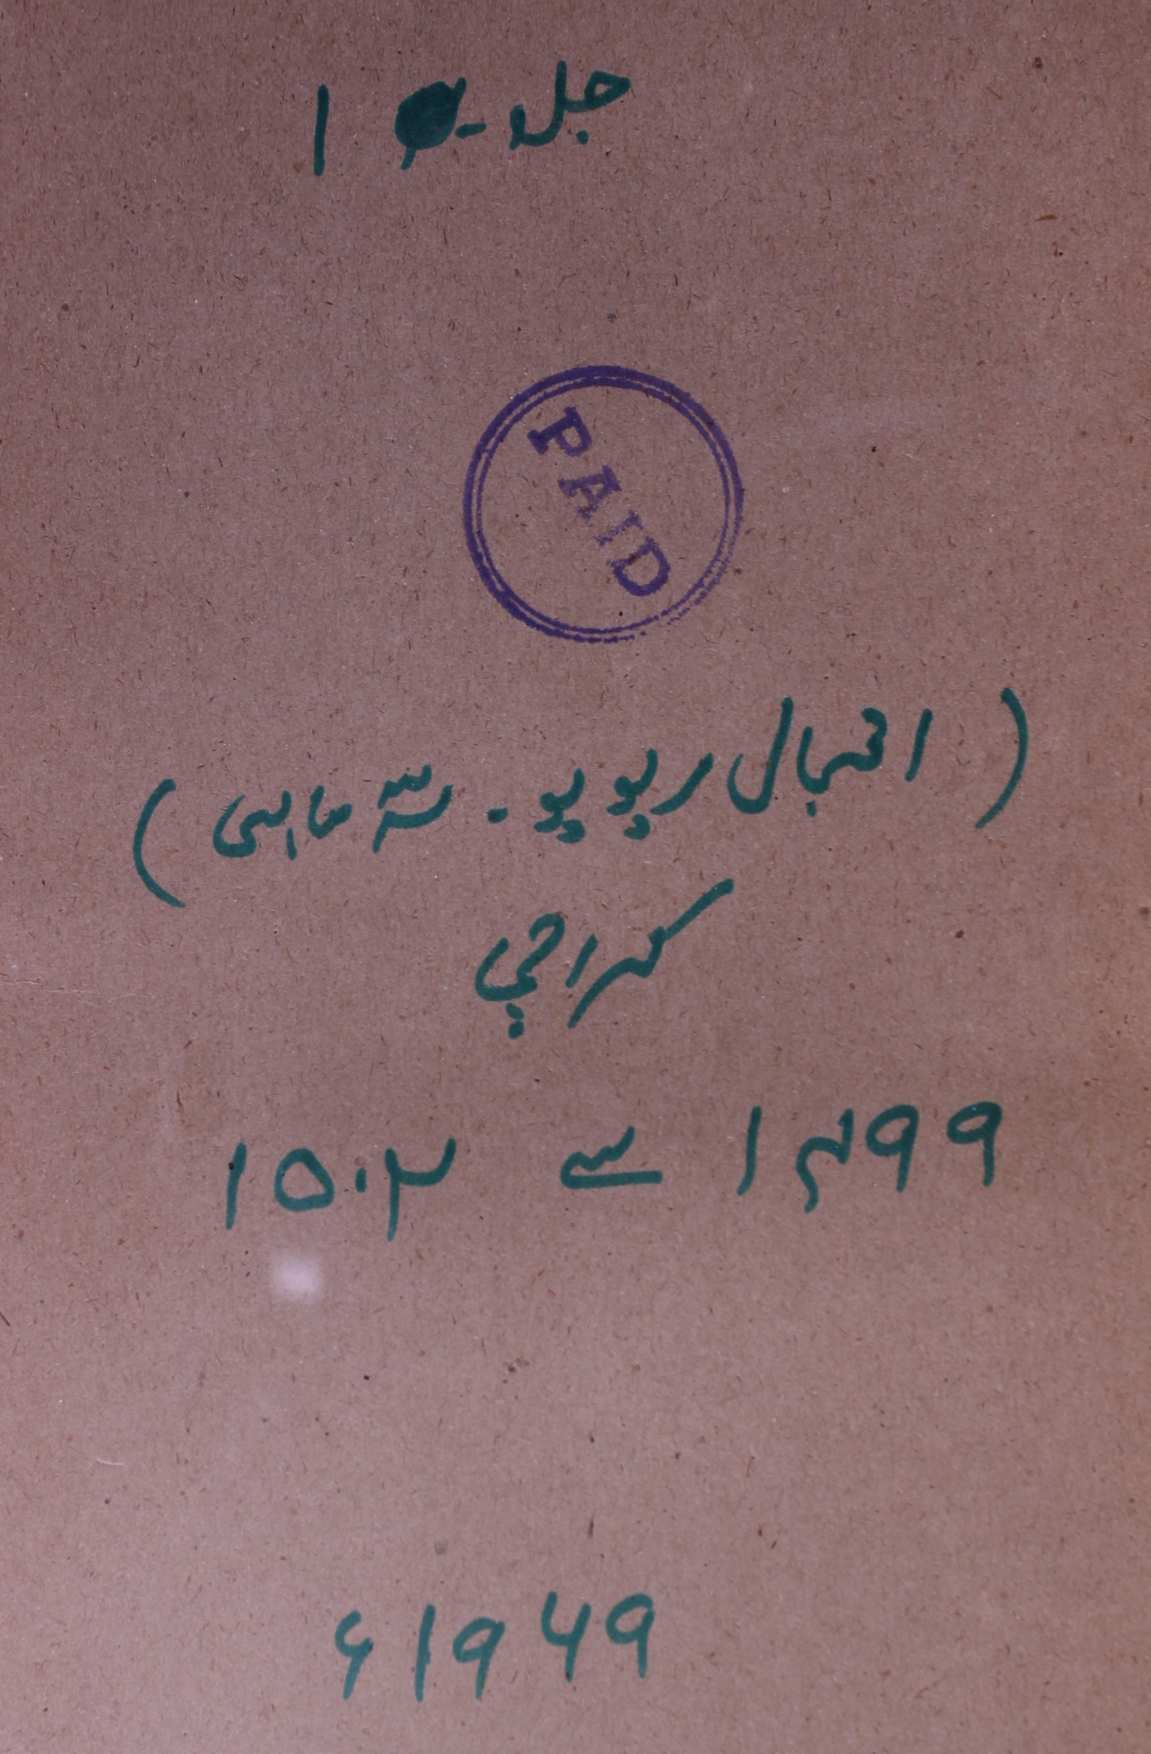 جلد - ۱
PAID
( اقبال ریویو - سہ ماہی )
کراچی
۱۴۹۹ سے ۱۵۰۲
۱۹۶۹ء